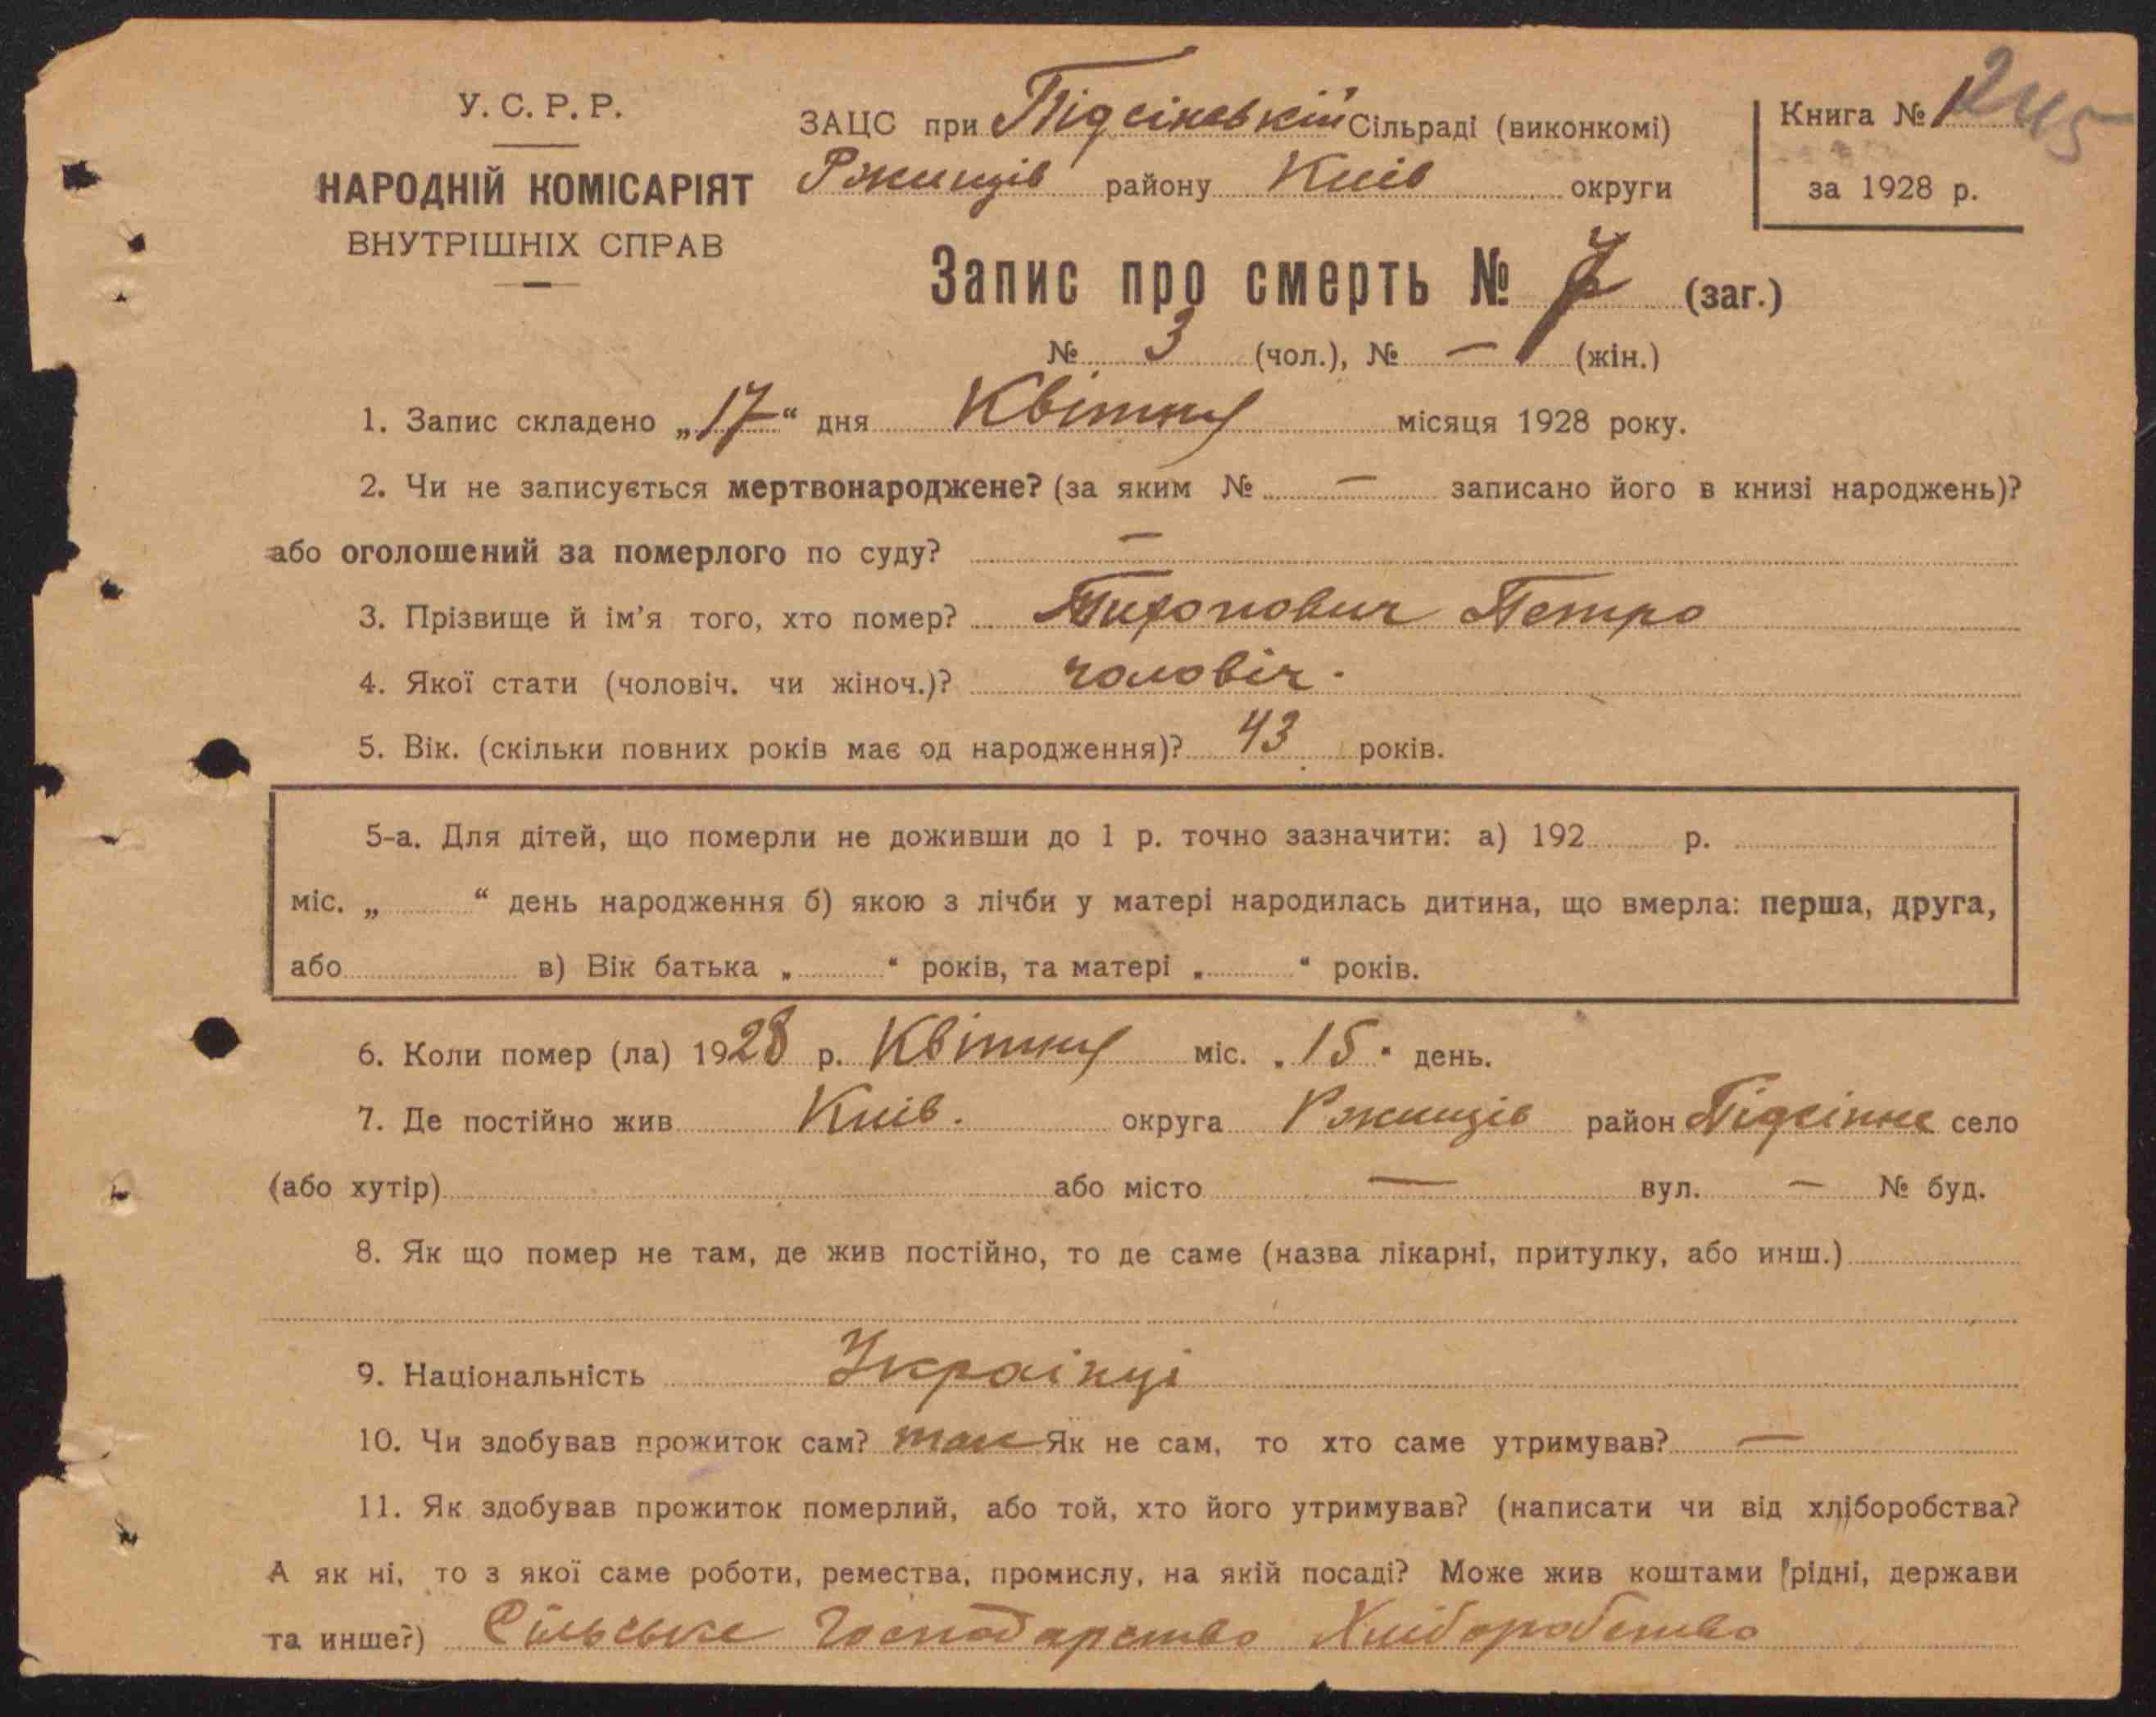 У.С.Р.Р.
НАРОДНІЙ КОМІСАРІЯТ
ВНУТРІШНІХ СПРАВ
ЗАЦС при Підсінській Сільраді (виконкомі)
Ржищів району Київ округи
Книга № 1 245
за 1928 р.
Запис про смерть № 7 (заг.)
№ 3 (чол.), № — (жін.)
1. Запис складено „17“ дня Квітня місяця 1928 року.
2. Чи не записується мертвонароджене? (за яким № — записано його в книзі народжень)?
або оголошений за померлого по суду? —
3. Прізвище й ім'я того, хто помер? Тихонович Петро
4. Якої стати (чоловіч. чи жіноч.)? чоловіч.
5. Вік. (скільки повних років має од народження)? 43 років.
5-а. Для дітей, що померли не доживши до 1 р. точно зазначити: а) 192 р.
міс. „ “ день народження б) якою з лічби у матері народилась дитина, що вмерла: перша, друга,
або в) Вік батька „ “ років, та матері „ “ років.
6. Коли помер (ла) 1928 р. Квітня міс. „15“ день.
7. Де постійно жив Київ. округа Ржищів район Підсінне село
(або хутір) або місто — вул. — № буд.
8. Як що помер не там, де жив постійно, то де саме (назва лікарні, притулку, або инш.)
9. Національність Україніці
10. Чи здобував прожиток сам? так Як не сам, то хто саме утримував? —
11. Як здобував прожиток померлий, або той, хто його утримував? (написати чи від хліборобства?
А як ні, то з якої саме роботи, ремества, промислу, на якій посаді? Може жив коштами рідні, держави
та инше?) Сільське Господарство Хліборобство